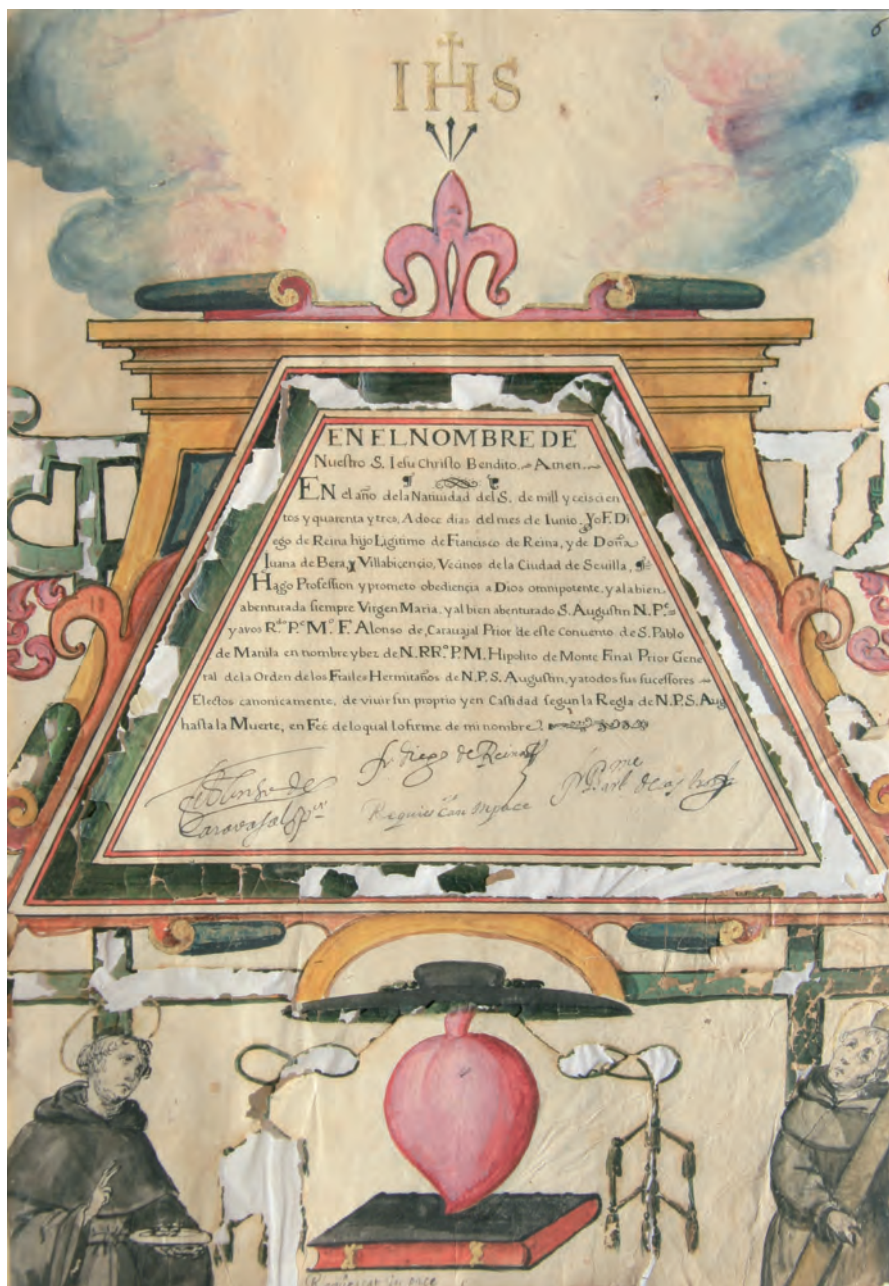 6
IHS
EN EL NOMBRE DE
Nuestro S. Iesu Christo Bendito. Amen.
EN el año dela Natiuidad del S. de mill y ceiscien
tos y quarenta y tres, A doce dias del mes de Iunio. Yo F. Di
ego de Reina hijo Ligitimo de Francisco de Reina, y de Doña
Iuana de Bera, y Villabicencio, Vecinos de la Ciudad de Seuilla,
Hago Profession y prometo obediençia a Dios omnipotente, y ala bien
abenturada siempre Virgen Maria, y al bien abenturado S. Augustin N. Pe.
y avos Rdo. Pe. Mo. F. Alonso de Carauajal Prior de este Conuento de S. Pablo
de Manila en nombre y bez de N. RRo. P. M. Hipolito de Monte Final Prior Gene
ral de la Orden de los Frailes Hermitaños de N. P. S. Augustin, y atodos sus sucessores
Electos canonicamente, de viuir sin proprio y en Castidad segun la Regla de N. P. S. Aug
hasta la Muerte, en Feé de lo qual lo firme de mi nombre.
fr. Diego de Reina
F. Alonso de
Caravajal Por
Requiescant in pace
Requiescat in pace